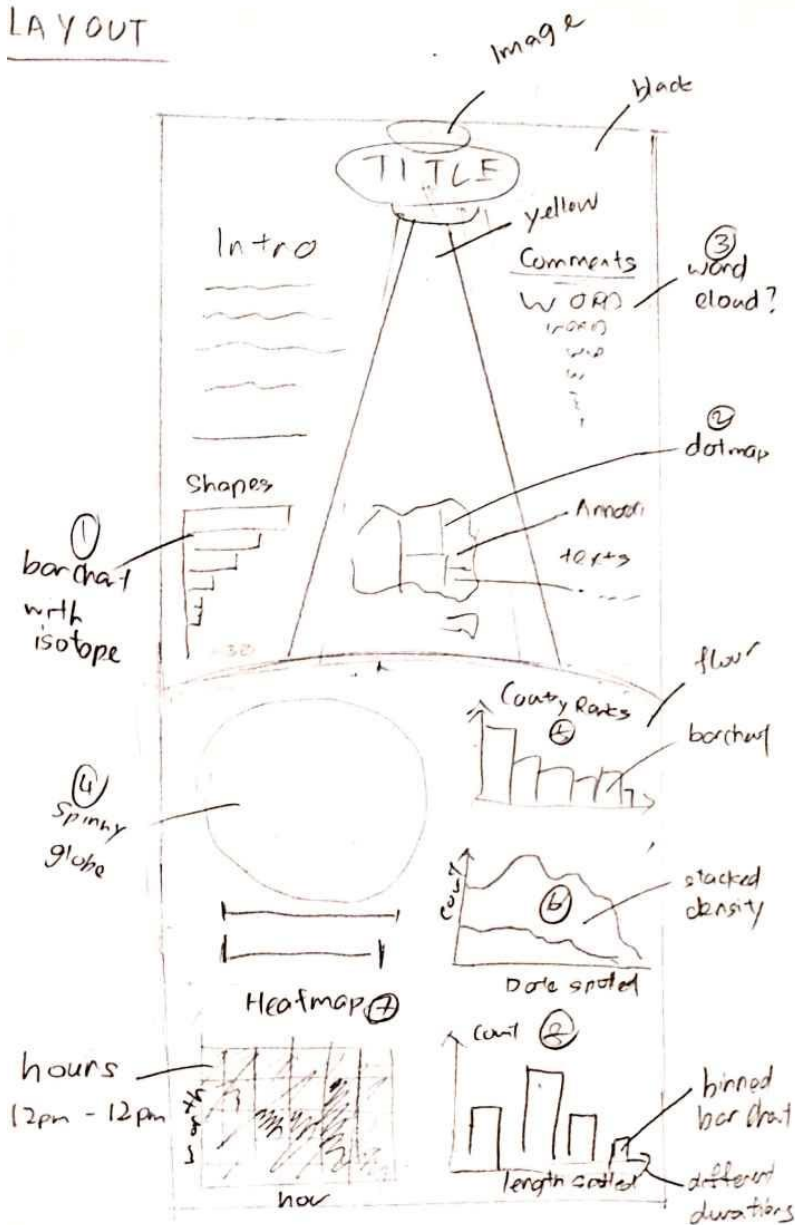 LAYOUT
Image
black
TITLE
yellow
Intro
Comments
③
word
cloud?
WORD
WORD
②
dotmap
Shapes
①
barchart
with
isotope
texts
floor
Country Ranks
⑤
barchart
④
Spinny
globe
Count
⑥
stacked
density
Date spotted
Heatmap ⑦
Count ⑧
hours
12pm - 12pm
month
hour
binned
bar chart
length spotted
different
durations